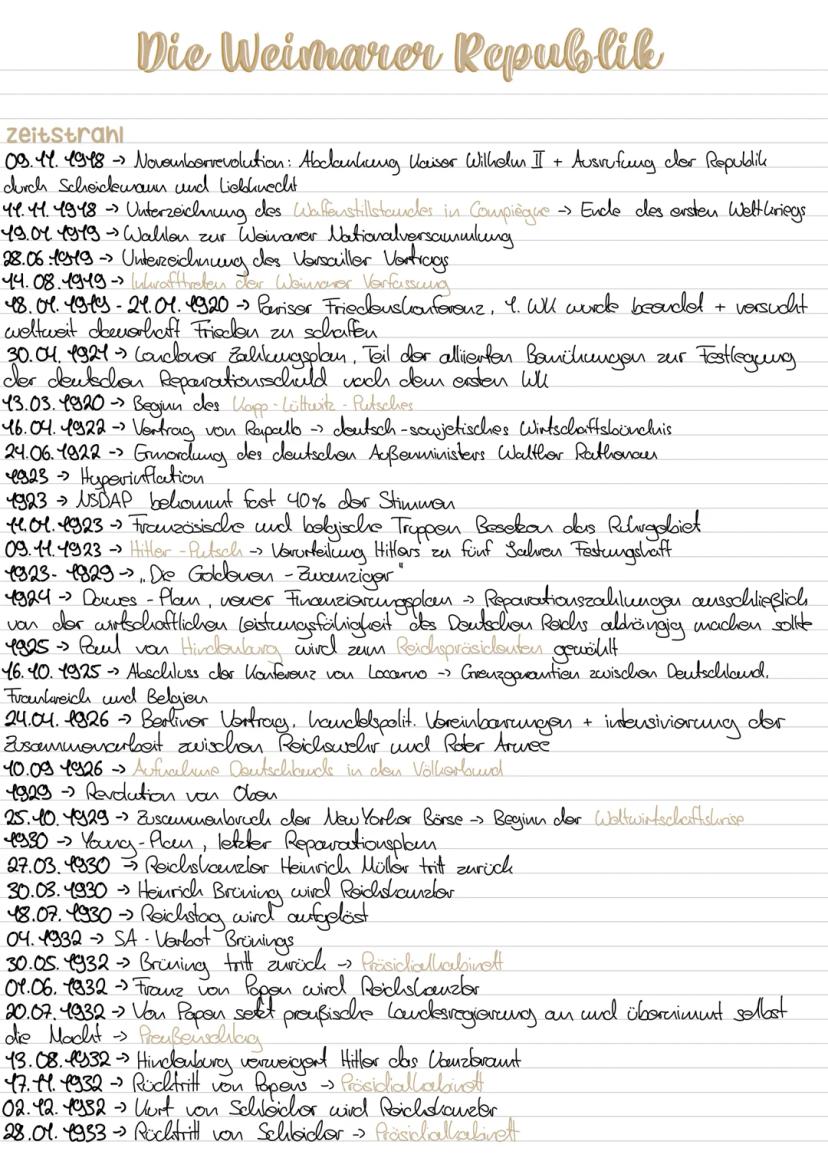 Die Weimarer Republik
zeitstrahl
09.11.1918 → Novemberrevolution: Abdankung Kaiser Wilhelm II + Ausrufung der Republik
durch Scheidemann und Liebknecht
11.11.1918 → Unterzeichnung des Waffenstillstandes in Compiègne → Ende des ersten Weltkriegs
19.01.1919 → Wahlen zur Weimarer Nationalversammlung
28.06.1919 → Unterzeichnung des Versailler Vertrags
14.08.1919 → Inkrafttreten der Weimarer Verfassung
18.01.1919 - 21.01.1920 → Pariser Friedenskonferenz, 1. WK wurde beendet + versucht
weltweit dauerhaft Frieden zu schaffen
30.04.1921 → Londoner Zahlungsplan, Teil der alliierten Bemühungen zur Festlegung
der deutschen Reparationsschuld nach dem ersten WK
13.03.1920 → Beginn des Kapp-Lüttwitz-Putsches
16.04.1922 → Vertrag von Rapallo → deutsch-sowjetisches Wirtschaftsbündnis
24.06.1922 → Ermordung des deutschen Außenministers Walther Rathenau
1923 → Hyperinflation
1923 → NSDAP bekommt fast 40% der Stimmen
11.01.1923 → Französische und belgische Truppen Besetzen das Ruhrgebiet
09.11.1923 → Hitler-Putsch → Verurteilung Hitlers zu fünf Jahren Festungshaft
1923-1929 → „Die Goldenen-Zwanziger"
1924 → Dawes-Plan, neuer Finanzierungsplan → Reparationszahlungen ausschließlich
von der wirtschaftlichen Leistungsfähigkeit des Deutschen Reichs abhängig machen sollte
1925 → Paul von Hindenburg wird zum Reichspräsidenten gewählt
16.10.1925 → Abschluss der Konferenz von Locarno → Grenzgarantien zwischen Deutschland,
Frankreich und Belgien
24.04.1926 → Berliner Vertrag, handelspolit. Vereinbarungen + intensivierung der
Zusammenarbeit zwischen Reichswehr und Roter Armee
10.09.1926 → Aufnahme Deutschlands in den Völkerbund
1929 → Revolution von Oben
25.10.1929 → Zusammenbruch der New Yorker Börse → Beginn der Weltwirtschaftskrise
1930 → Young-Plan, letzter Reparationsplan
27.03.1930 → Reichskanzler Heinrich Müller tritt zurück
30.03.1930 → Heinrich Brüning wird Reichskanzler
18.07.1930 → Reichstag wird aufgelöst
04.1932 → SA-Verbot Brünings
30.05.1932 → Brüning tritt zurück → Präsidialkabinett
01.06.1932 → Franz von Papen wird Reichskanzler
20.07.1932 → Von Papen setzt preußische Landesregierung an und übernimmt selbst
die Macht → Preußenschlag
13.08.1932 → Hindenburg verweigert Hitler das Kanzleramt
17.11.1932 → Rücktritt von Papens → Präsidialkabinett
02.12.1932 → Kurt von Schleicher wird Reichskanzler
28.01.1933 → Rücktritt von Schleicher → Präsidialkabinett